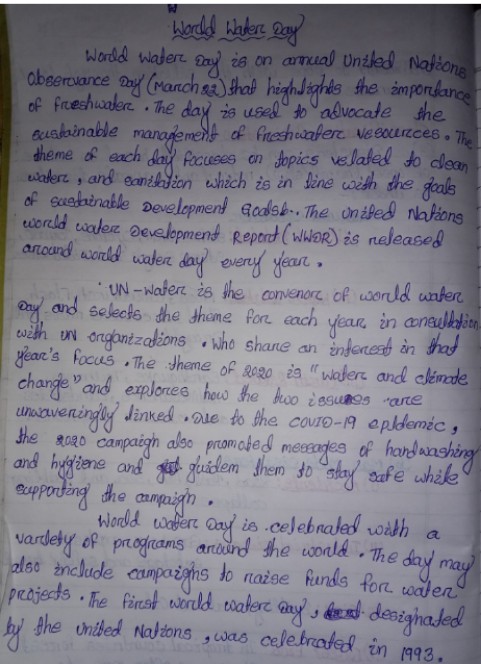 World Water Day
World Water Day is on annual United Nations
Observance Day (March 22) that highlights the importance
of freshwater. The day is used to advocate the
sustainable management of freshwater resources. The
theme of each day focuses on topics related to clean
water, and sanitation which is in line with the goals
of sustainable Development Goals. The United Nations
world water Development Report (WWDR) is released
around world water day every year.
UN-water is the convenor of world water
Day and selects the theme for each year in consultation
with UN organizations. Who share an interest in that
year's focus. The theme of 2020 is "water and climate
change" and explores how the two issues are
unwaveringly linked. Due to the COVID-19 epidemic,
the 2020 campaign also promoted messages of handwashing
and hygiene and guidem them to stay safe while
supporting the campaign.
World water Day is celebrated with a
variety of programs around the world. The day may
also include campaigns to raise funds for water
projects. The first world water Day, designated
by the United Nations, was celebrated in 1993.